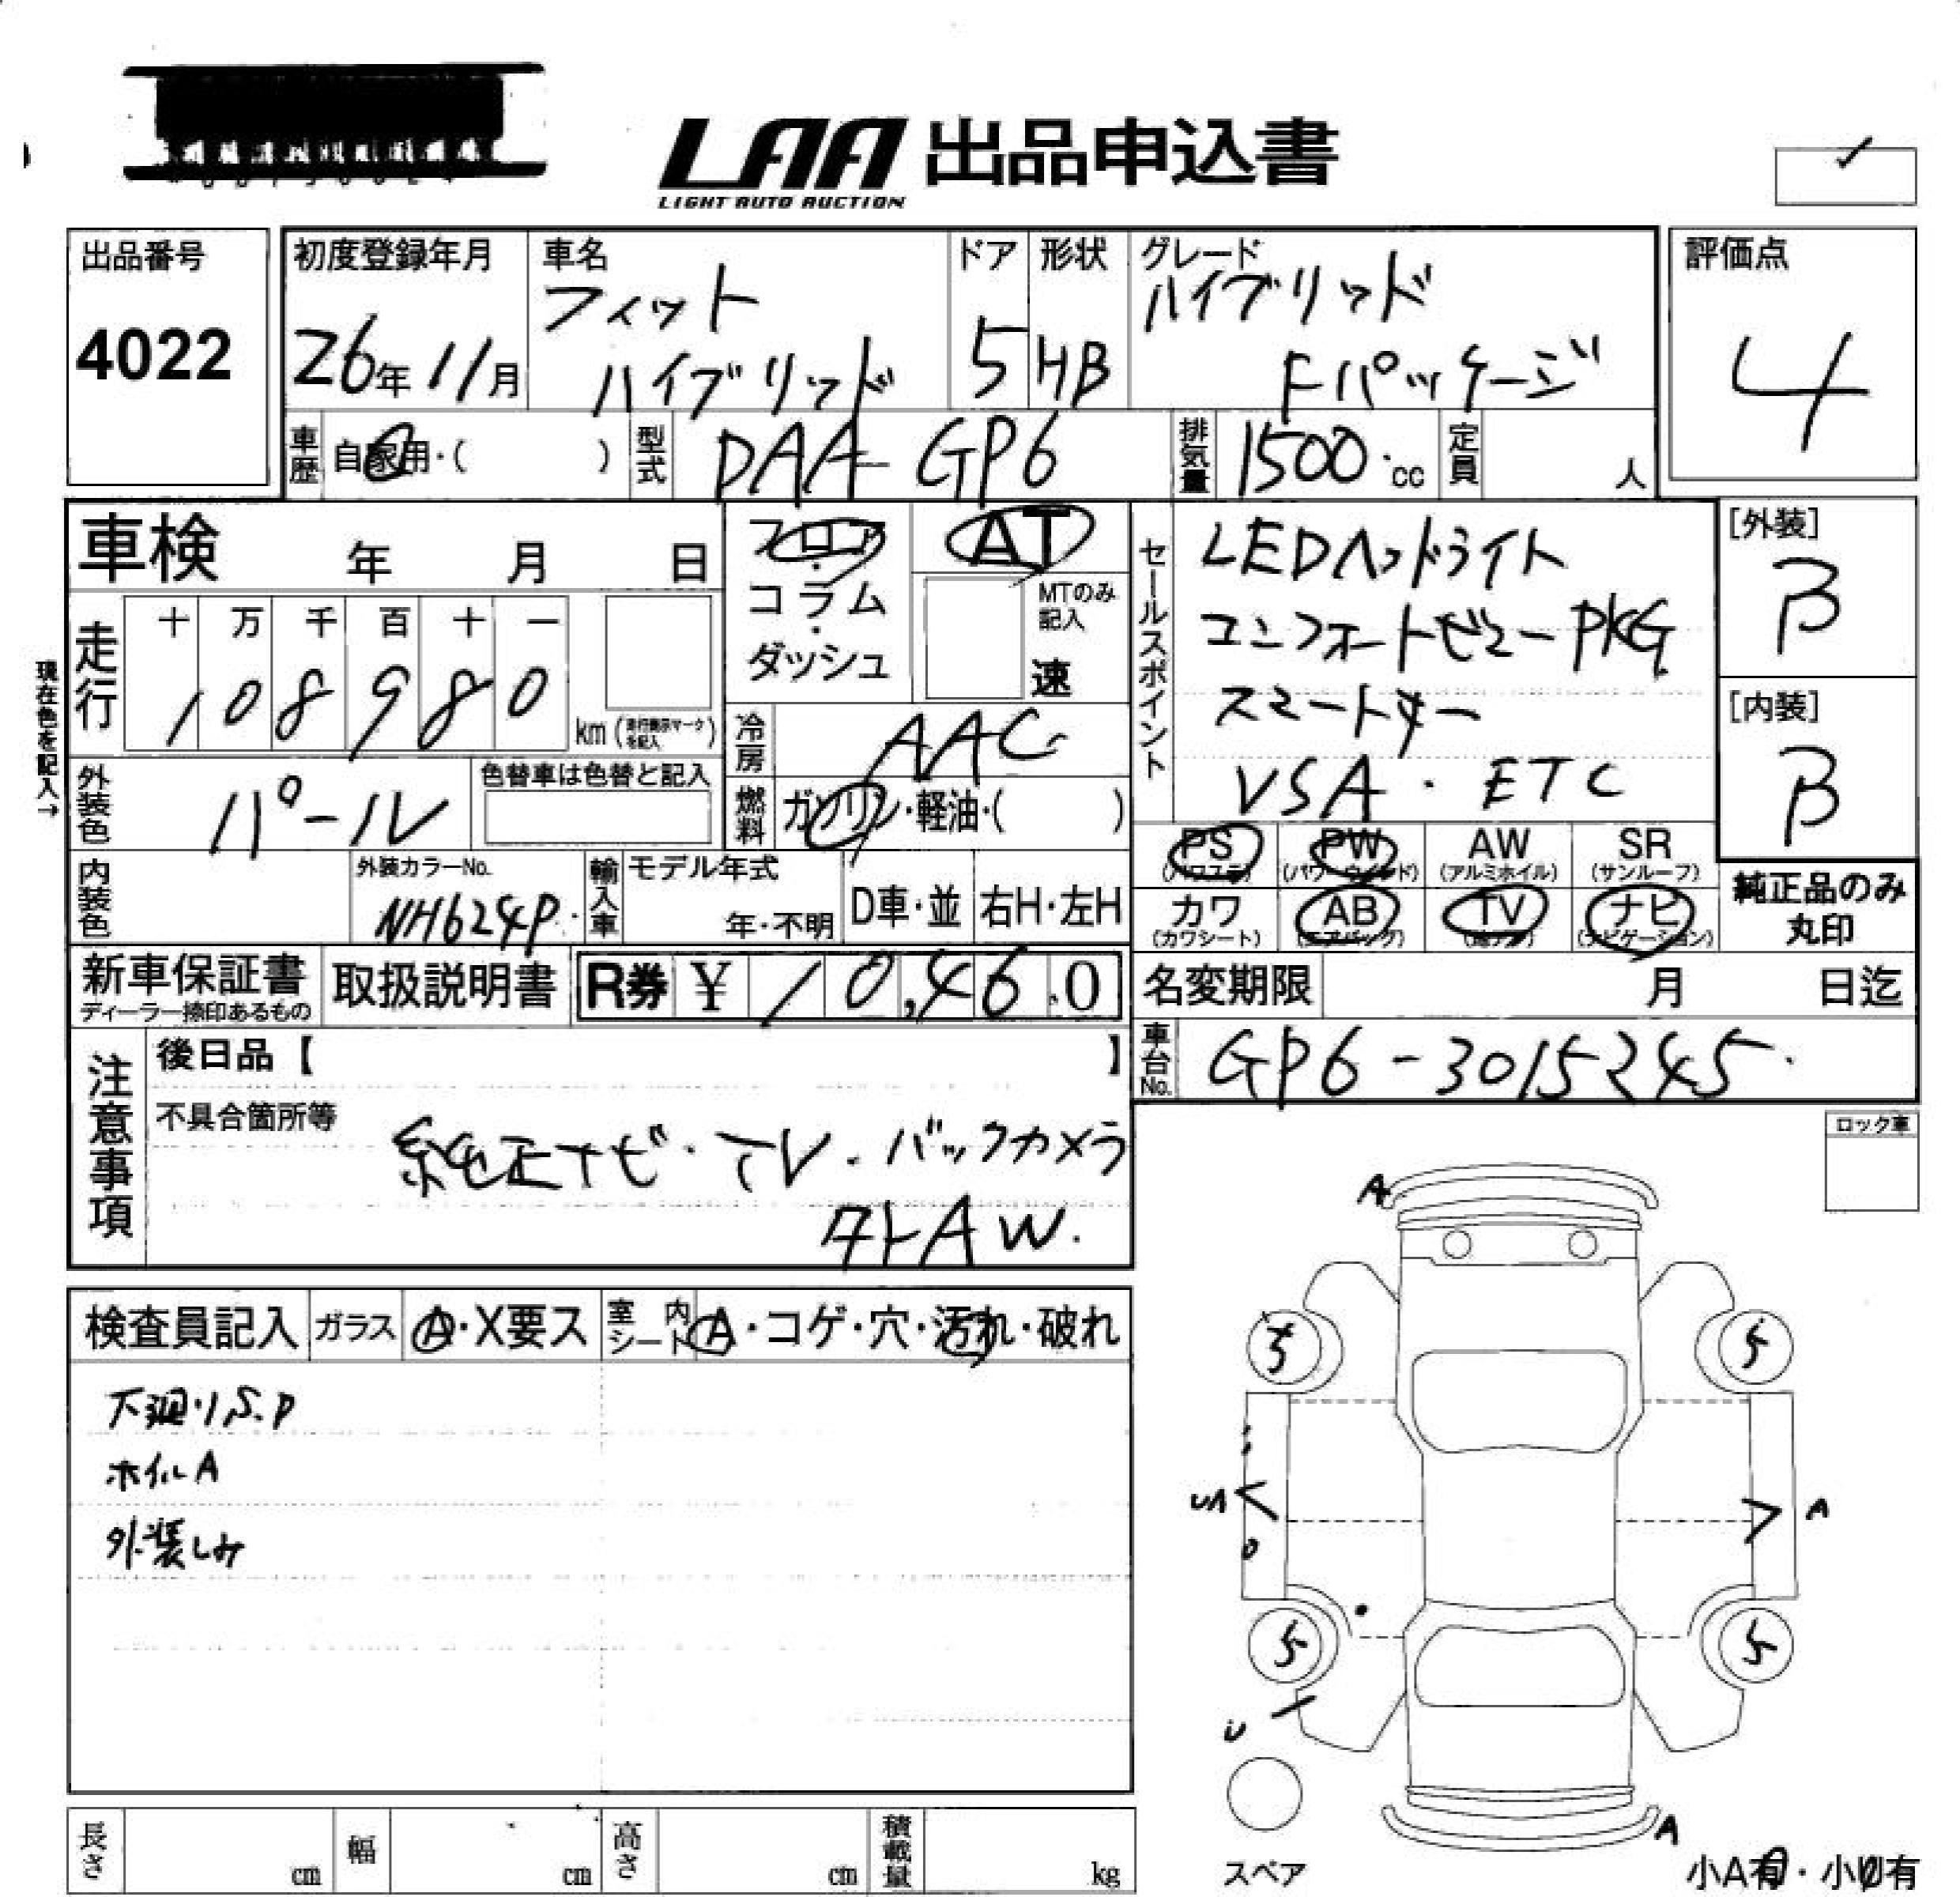 LAA 出品申込書
LIGHT AUTO AUCTION
出品番号
4022
初度登録年月
26年11月
車名
フィット
ハイブリッド
ドア
5
形状
HB
グレード
ハイブリッド
Fパッケージ
評価点
4
車歴
自家用・( )
型式
DAA-GP6
排気量
1500cc
定員
人
車検 年 月 日
フロア
・
コラム
・
ダッシュ
AT
MTのみ
記入
速
セールスポイント
LEDヘッドライト
コンフォートビューPKG
スマートキー
VSA・ETC
[外装]
B
[内装]
B
現在色を記入→
走行
十 万 千 百 十 一
1 0 8 9 8 0
km (走行表示マークを記入)
冷房
AAC
燃料
ガソリン・軽油・( )
外装色
パール
色替車は色替と記入
内装色
外装カラーNo.
NH624P
輸入車
モデル年式
年・不明
D車・並
右H・左H
PS
(パワステ)
PW
(パワーウインド)
AW
(アルミホイル)
SR
(サンルーフ)
カワ
(カワシート)
AB
(エアバッグ)
TV
(地デジ)
ナビ
(ナビゲーション)
純正品のみ
丸印
新車保証書
ディーラー捺印あるもの
取扱説明書
R券 ¥ 10,460
名変期限 月 日迄
車台No.
GP6-3015245
注意事項
後日品【 】
不具合箇所等
純正ナビ・TV・バックカメラ
外AW.
ロック車
検査員記入
ガラス
A・X要ス
室内
シート
A・コゲ・穴・汚れ・破れ
下廻りS.P
ホイルA
外装しみ
A
5
5
UA
A
5
5
U
A
スペア
小A有・小U有
長さ
cm
幅
cm
高さ
cm
積載量
kg